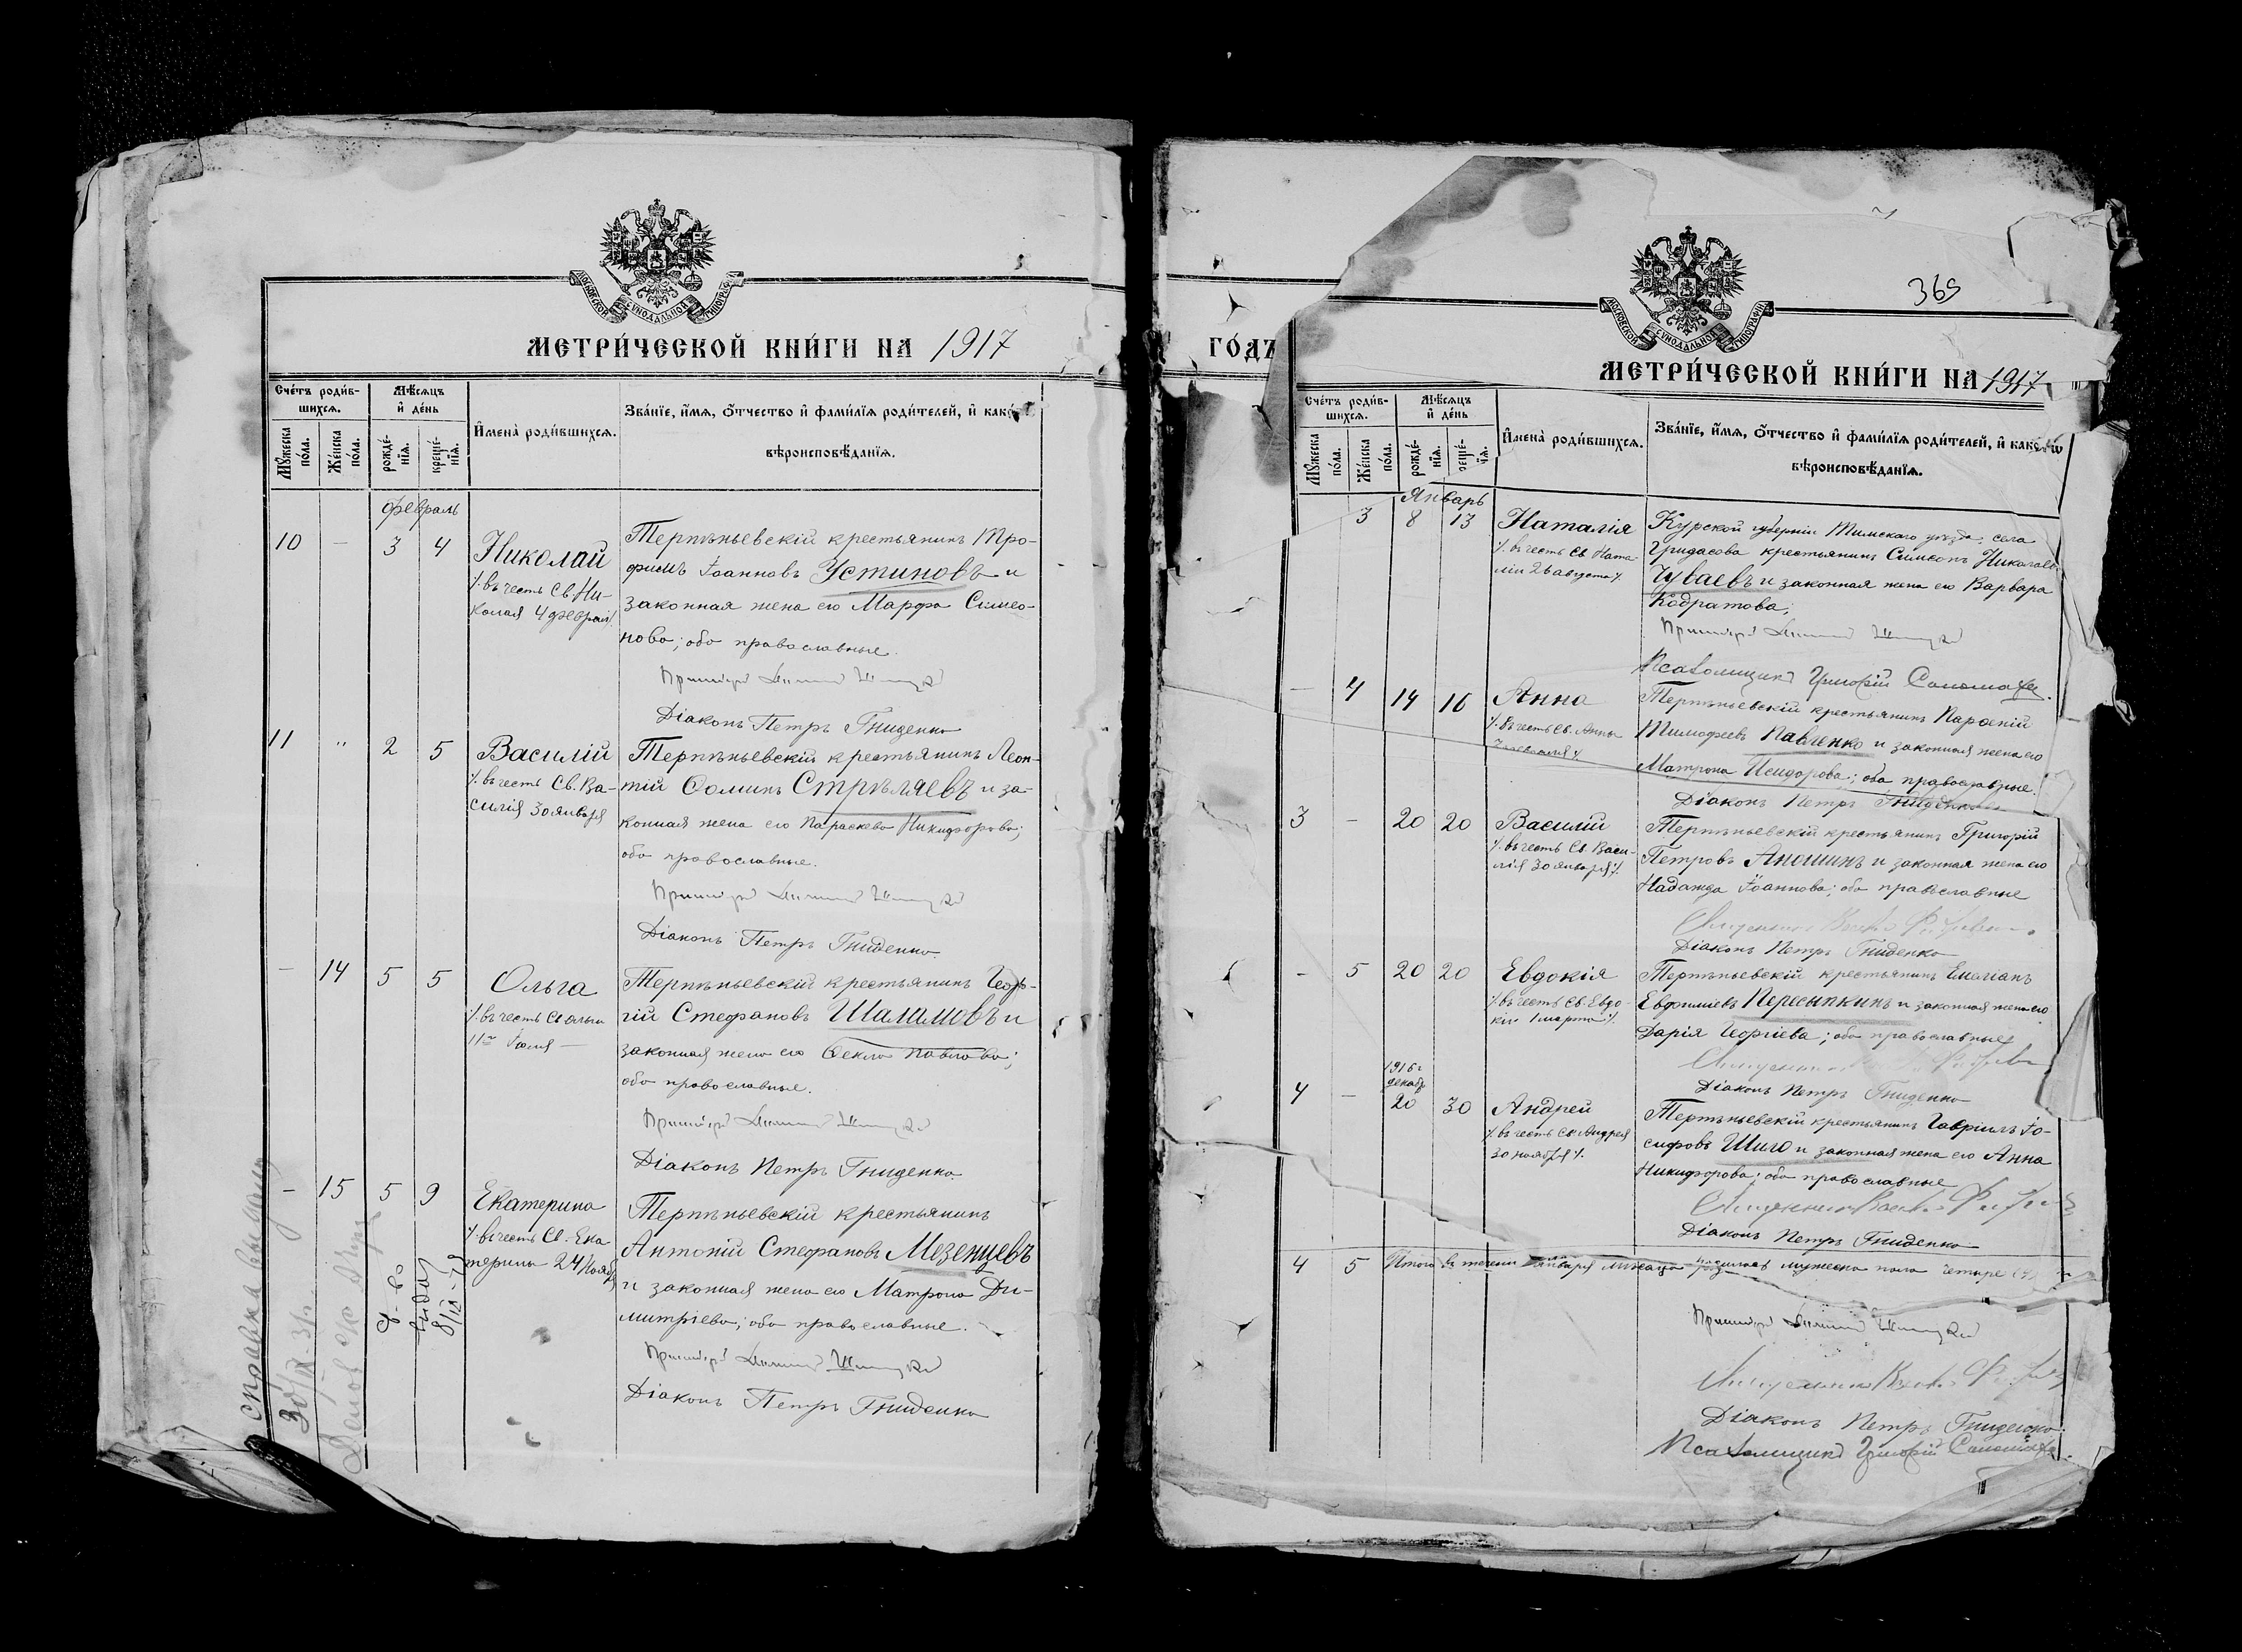 МОСКОВСКОЙ СѴНОДАЛЬНОЙ ТИПОГРАФІИ
МЕТРИ́ЧЕСКОЙ КНИ́ГИ НА 1917
Сче́тъ роди́в-
шихся.
Мѣ́сяцъ
и҆ де́нь
Мꙋ́жеска
по́ла.
Же́нска
по́ла.
рожде́-
нїя.
креще́-
нїя.
И҆мена̀ роди́вшихся.
Зва́нїе, и҆́мя, ѻ҆́тчество и҆ фами́лїя роди́телей, и҆ како́
вѣроисповѣ́данїя.
Февраль
10 — 3 4 Николай
/. въ честь Св. Ни-
колая 4 февраля/.
Терпѣньевскій крестьянинъ Тро-
фимъ Іоанновъ Устиновъ и
законная жена его Марфа Симео-
нова; оба православные.
Діаконъ Петръ Гниденко
11 " 2 5 Василій
/. въ честь Св. Ва-
силія 30 января
Терпѣньевскій крестьянинъ Леон-
тій Ѳоминъ Стрѣляевъ и за-
конная жена его Параскева Никифорова;
оба православные.
Діаконъ Петръ Гниденко.
— 14 5 5 Ольга
/. въ честь Св Ольги
11го Іюля —
Терпѣньевскій крестьянинъ Геор-
гій Стефановъ Шаламовъ и
законная жена его Ѳекла Павлова;
оба православные.
Діаконъ Петръ Гниденко.
— 15 5 9 Екатерина
/. въ честь Св. Ека-
терины 24 Ноября
Терпѣньевскій крестьянинъ
Антоній Стефановъ Мезенцевъ
и законная жена его Матрона Ди-
митріева; оба православные.
Діаконъ Петръ Гниденко
справка выдана
ГО́ДЪ
365
МОСКОВСКОЙ СѴНОДАЛЬНОЙ ТИПОГРАФІИ
МЕТРИ́ЧЕСКОЙ КНИ́ГИ НА 1917
Сче́тъ роди́в-
шихся.
Мѣ́сяцъ
и҆ де́нь
Мꙋ́жеска
по́ла.
Же́нска
по́ла.
рожде́-
нїя.
И҆мена̀ роди́вшихся.
Зва́нїе, и҆́мя, ѻ҆́тчество и҆ фами́лїя роди́телей, и҆ како́гѡ
вѣроисповѣ́данїя.
Январь
3 8 13 Наталія
/. въ честь Св. Ната-
ліи 26 августа /.
Курской губерніи Тимскаго уѣзда, села
Гридасова крестьянинъ Симеонъ Николаевъ
Чуваевъ и законная жена его Варвара
Кодратова;
Псаломщикъ Григорій Соломаха.
— 4 14 16 Анна
/. въ честь Св. Анны
Терпѣньевскій крестьянинъ Парѳеній
Тимофеевъ Павленко и законная жена его
Матрона Исидорова; оба православные.
Діаконъ Петръ Гниденко
3 — 20 20 Василій
/. въ честь Св. Васи-
лія 30 января /.
Терпѣньевскій крестьянинъ Григорій
Петровъ Аношинъ и законная жена его
Надежда Іоаннова; оба православные
Діаконъ Петръ Гниденко
— 5 20 20 Евдокія
/. въ честь Св. Евдо-
кіи 1 марта /.
Терпѣньевскій крестьянинъ Емиліанъ
Евфиміевъ Пересыпкинъ и законная жена его
Дарія Георгіева; оба православные
Діаконъ Петръ Гниденко
1916 г
декабр
4 — 20 30 Андрей
/. въ честь Св Андрея
30 ноября /.
Терпѣньевскій крестьянинъ Гавріилъ Іо-
сифовъ Шило и законная жена его Анна
Никифорова; оба православные
Діаконъ Петръ Гниденко
4 5 Итого въ теченіи января мѣсяца родилось мужеска пола четыре (4)
Діаконъ Петръ Гниденко.
Псаломщикъ Григорій Соломаха.